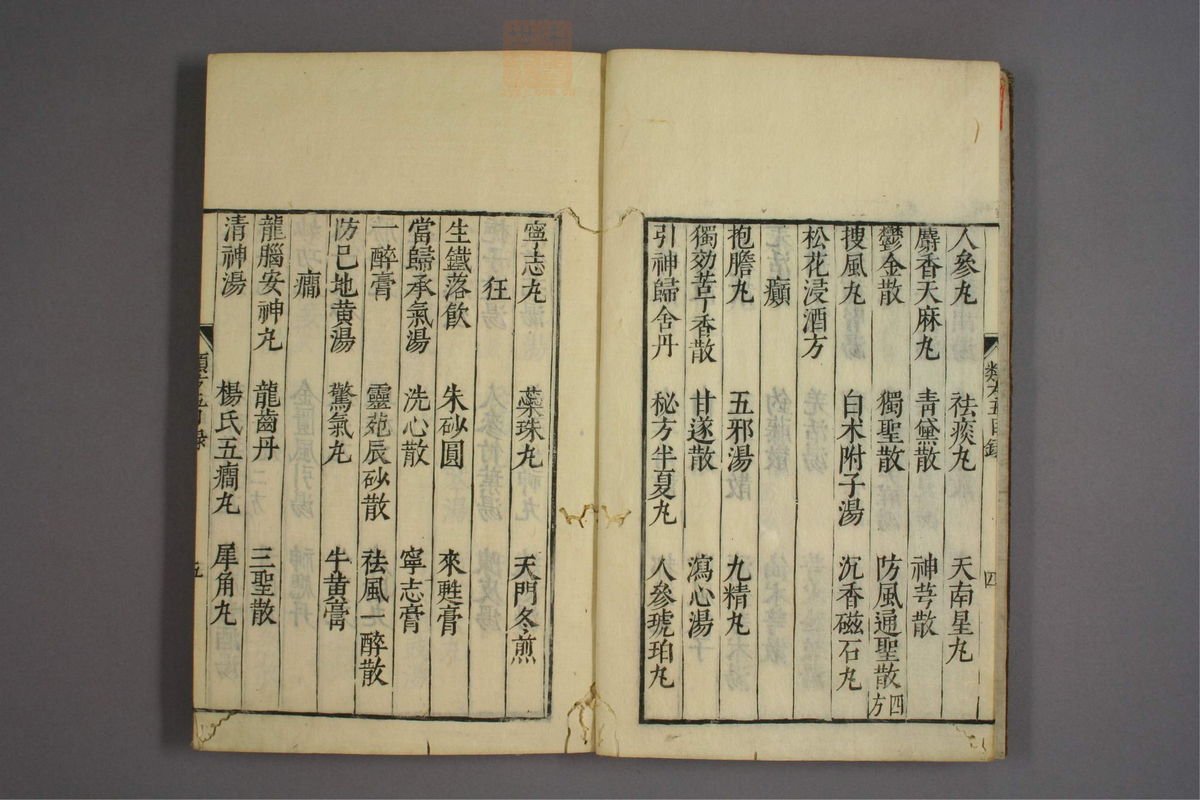 人參丸 祛痰丸 天南星丸
麝香天麻丸 青黛散 神芎散
鬱金散 獨聖散 防風通聖散四方
搜風丸 白朮附子湯 沉香磁石丸
松花浸酒方
癲
抱膽丸 五邪湯 九精丸
獨効苦丁香散 甘遂散 瀉心湯
引神歸舍丹 秘方半夏丸 人參琥珀丸
類方五目錄 四
寧志丸 蘂珠丸 天門冬煎
狂
生鐵落飲 朱砂圓 來甦膏
當歸承氣湯 洗心散 寧志膏
一醉膏 靈苑辰砂散 祛風一醉散
防巳地黃湯 驚氣丸 牛黃膏
癎
龍腦安神丸 龍齒丹 三聖散
清神湯 楊氏五癎丸 犀角丸
五